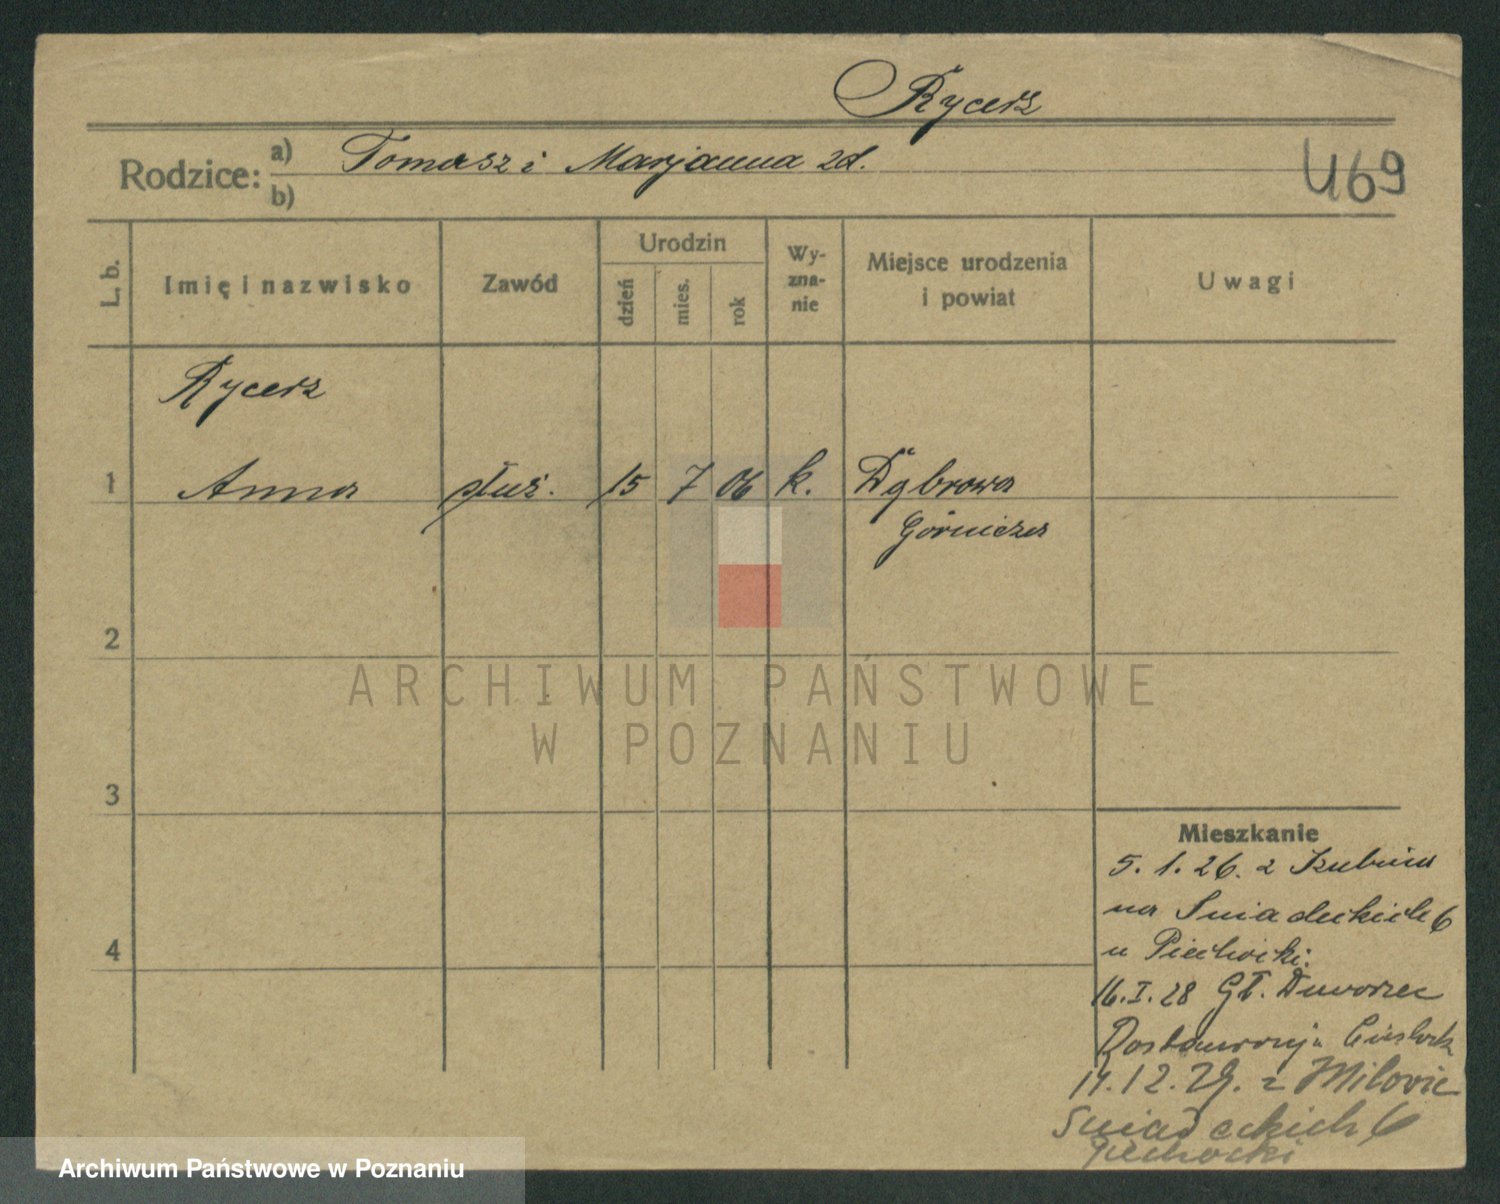 Rycerz
Rodzice: a) Tomasz i Marjanna zd.
b)
469
L. b.
Imię i nazwisko
Zawód
Urodzin
dzień
mies.
rok
Wy-
zna-
nie
Miejsce urodzenia
i powiat
Uwagi
Rycerz
1 Anna służ. 15 7 06 k. Dąbrowa
Górnicza
2
3
4
Mieszkanie
5. 1. 26. z
na Śniadeckich 6
u Piechocki.
16. I. 28 Gł. Dworzec
14. 12. 29. z Milovic
Śniadeckich 6
Piechocki
ARCHIWUM PAŃSTWOWE
W POZNANIU
Archiwum Państwowe w Poznaniu